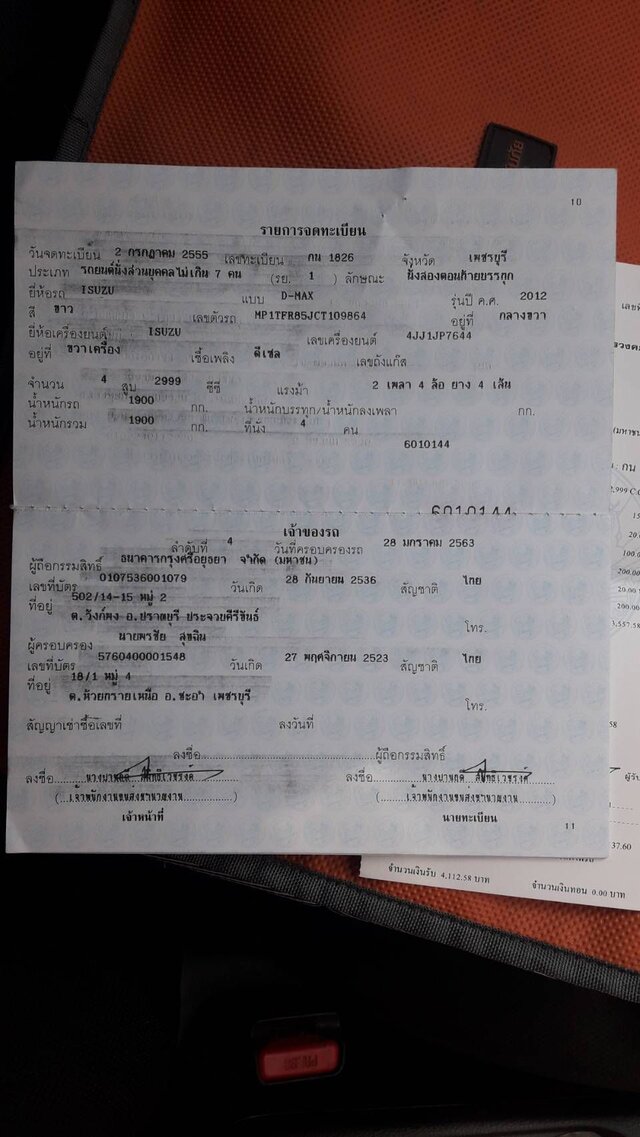 10
รายการจดทะเบียน
วันจดทะเบียน 2 กรกฎาคม 2555 เลขทะเบียน กน 1826 จังหวัด เพชรบุรี
ประเภท รถยนต์นั่งส่วนบุคคลไม่เกิน 7 คน (รย. 1 ) ลักษณะ นั่งสองตอนท้ายบรรทุก
ยี่ห้อรถ ISUZU แบบ D-MAX รุ่นปี ค.ศ. 2012
สี ขาว เลขตัวรถ MP1TFR85JCT109864 อยู่ที่ กลางขวา
ยี่ห้อเครื่องยนต์ ISUZU เลขเครื่องยนต์ 4JJ1JP7644
อยู่ที่ ขวาเครื่อง เชื้อเพลิง ดีเซล เลขถังแก๊ส
จำนวน 4 สูบ 2999 ซีซี แรงม้า 2 เพลา 4 ล้อ ยาง 4 เส้น
น้ำหนักรถ 1900 กก. น้ำหนักบรรทุก/น้ำหนักลงเพลา กก.
น้ำหนักรวม 1900 กก. ที่นั่ง 4 คน
6010144
6010144
เจ้าของรถ
ลำดับที่ 4 วันที่ครอบครองรถ 28 มกราคม 2563
ผู้ถือกรรมสิทธิ์ ธนาคารกรุงศรีอยุธยา จำกัด (มหาชน)
เลขที่บัตร 0107536001079 วันเกิด 28 กันยายน 2536 สัญชาติ ไทย
ที่อยู่ 502/14-15 หมู่ 2
ต.วังก์พง อ.ปราณบุรี ประจวบคีรีขันธ์ โทร.
ผู้ครอบครอง นายพรชัย สุขฉิน
เลขที่บัตร 5760400001548 วันเกิด 27 พฤศจิกายน 2523 สัญชาติ ไทย
ที่อยู่ 18/1 หมู่ 4
ต.ห้วยทรายเหนือ อ.ชะอำ เพชรบุรี โทร.
สัญญาเช่าซื้อเลขที่ ลงวันที่
ลงชื่อ ผู้ถือกรรมสิทธิ์
ลงชื่อ ลงชื่อ
(เจ้าพนักงานขนส่งชำนาญงาน) (เจ้าพนักงานขนส่งชำนาญงาน)
เจ้าหน้าที่ นายทะเบียน
11
เลขที่
(มหาชน
: กน
2,999 C.C
200.00
20.00
200.00
3,557.58
37.60
จำนวนเงินรับ 4,112.58 บาท จำนวนเงินทอน 0.00 บาท